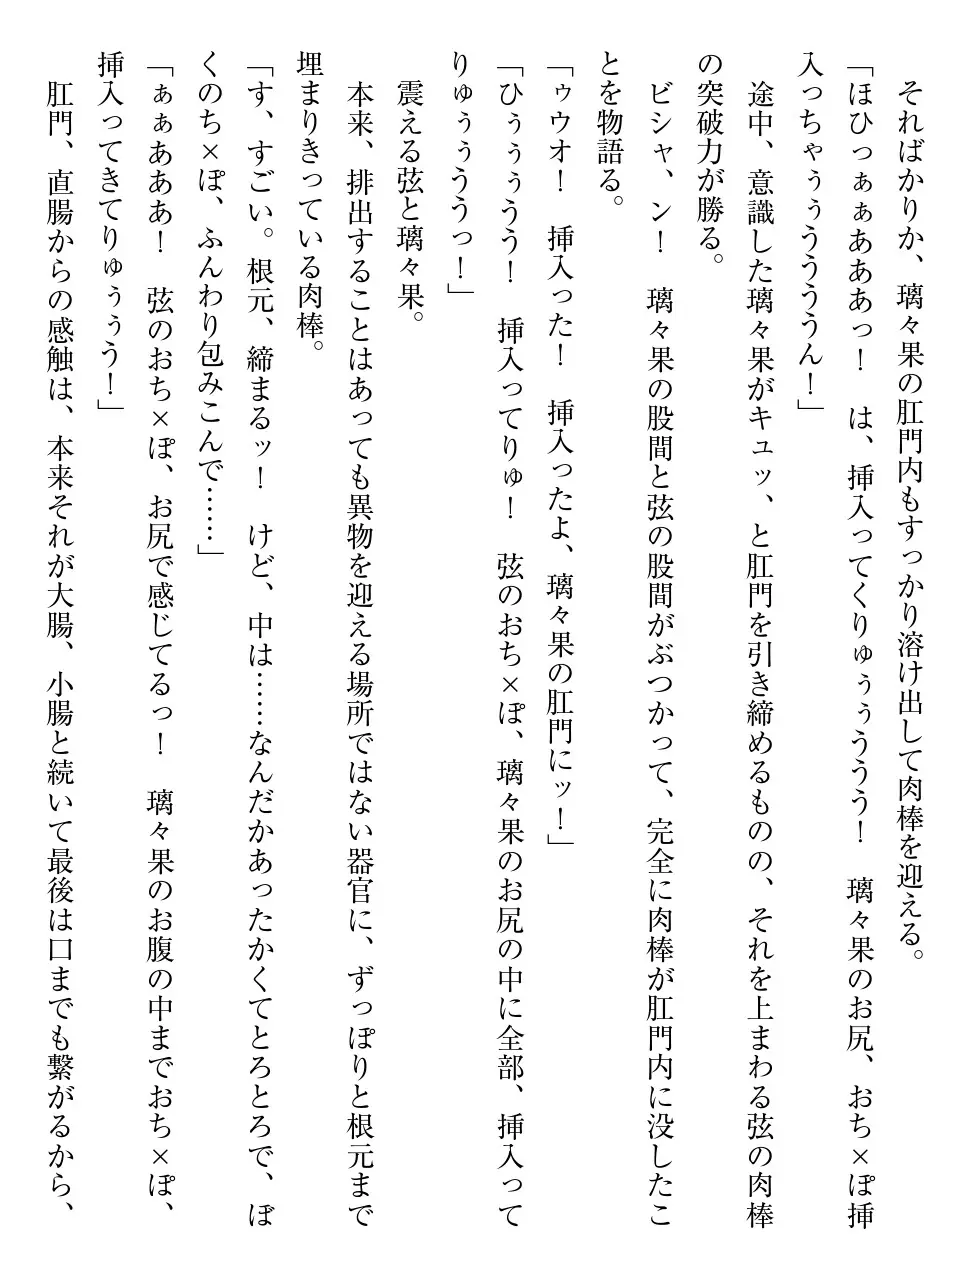 そればかりか、璃々果の肛門内もすっかり溶け出して肉棒を迎える。
「ほひっぁぁあああっ！　は、挿入ってくりゅぅぅううう！　璃々果のお尻、おち×ぽ挿
入っちゃぅぅうううん！」
途中、意識した璃々果がキュッ、と肛門を引き締めるものの、それを上まわる弦の肉棒
の突破力が勝る。
ビシャ、ン！　璃々果の股間と弦の股間がぶつかって、完全に肉棒が肛門内に没したこ
とを物語る。
「ゥウオ！　挿入った！　挿入ったよ、璃々果の肛門にッ！」
「ひぅぅぅうう！　挿入ってりゅ！　弦のおち×ぽ、璃々果のお尻の中に全部、挿入って
りゅぅぅううっ！」
震える弦と璃々果。
本来、排出することはあっても異物を迎える場所ではない器官に、ずっぽりと根元まで
埋まりきっている肉棒。
「す、すごい。根元、締まるッ！　けど、中は……なんだかあったかくてとろとろで、ぼ
くのち×ぽ、ふんわり包みこんで……」
「ぁぁあああ！　弦のおち×ぽ、お尻で感じてるっ！　璃々果のお腹の中までおち×ぽ、
挿入ってきてりゅぅぅう！」
肛門、直腸からの感触は、本来それが大腸、小腸と続いて最後は口までも繋がるから、